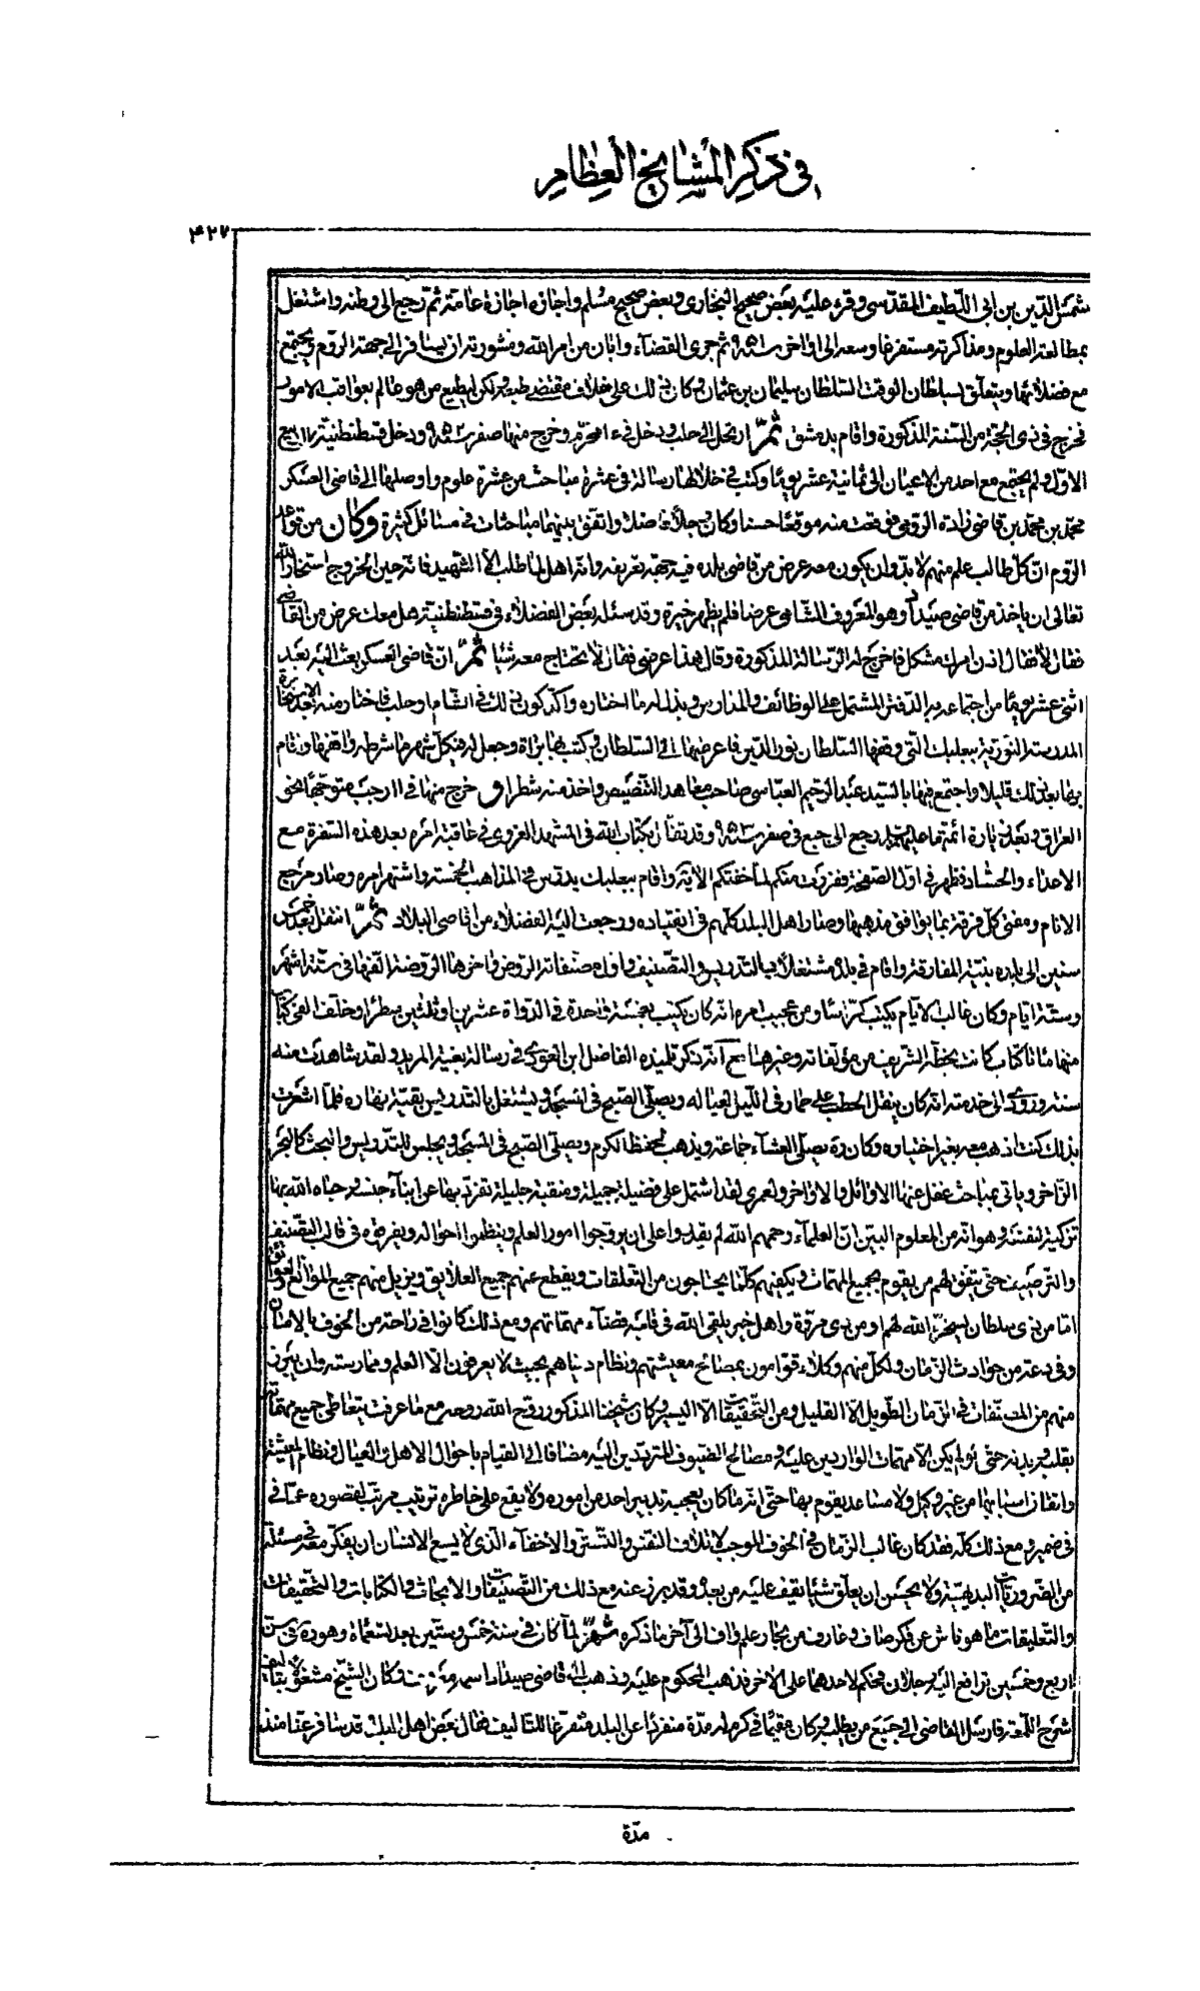 في ذكر المشايخ العظام
۴۲۷
شمس الدين بن ابى اللطيف المقدسى وقرء عليه بعض صحيح البخارى وبعض صحيح مسلم واجازه اجازة عامة ثم رجع الى وطنه واشتغل
بمطالعة العلوم ومذاكرته مستفرغا وسعه الى اواخر سنة ٩٥١ ثم جرى القضآء وابان من امر الله ومشورته ان يسافر الى جهة الروم ويجتمع
مع فضلائها ويتعلق بسلطان الوقت السلطان سليمان بن عثمان وكان ذلك على خلاف مقتضى طبعه ولكن ليطيع من هو عالم بعواقب الامور
فخرج في ذى الحجة من السنة المذكورة واقام بدمشق ثم ارتحل الى حلب ودخل في المحرم وخرج منها صفر سنة ٩٥٢ ودخل قسطنطنية ١٧ ربيع
الاول ولم يجتمع مع احد من الاعيان الى ثمانية عشر يوما وكتب في خلالها رسالة في عشرة مباحث من عشرة علوم واوصلها الى قاضى العسكر
محمد بن محمد بن قاضى زاده الرومى فوقعت منه موقعا حسنا وكان رجلا فاضلا واتفق بينهما مباحثات في مسائل كثيرة وكان من قواعد
الروم ان كل طالب علم منهم لا بد وان يكون معه عرض من قاضى بلده فيه جهة تعريفه وانه اهل لما طلب الا الشهيد فانه حين الخروج استخار الله
تعالى ان ياخذ من قاضى صيدا وهو المعروف الشامى عرضا فلم يظهر خيرة وقد سئله بعض الفضلاء في قسطنطنية هل معك عرض من القاضى
فقال لا فقال اذن امرك مشكل فاخرج له الرسالة المذكورة وقال هذا عرضى فقال لا تحتاج معه شيئا ثم ان قاضى العسكر بعث اليه بعد
اثنى عشر يوما من اجتماعه به الدفتر المشتمل على الوظائف والمدارس وبذل له ما اختاره واكد كون ذلك في الشام او حلب فاختار منه بعد الاستخارة
المدرسة النورية ببعلبك التى وقفها السلطان نور الدين فاعرضها الى السلطان وكتب بها براة وجعل له في كل شهر ما شرطه واقفها واقام
بها بعد ذلك قليلا واجتمع فيها بالسيد عبد الرحيم العباسى صاحب معاهد التنصيص واخذ منه شطرا وخرج منها في ١١ رجب متوجها نحو
العراق وبعد زيارة ائمتها عليهم السلام رجع الى جبع في صفر سنة ٩٥٣ وقد تفأل بكتاب الله في المشهد الغروى في عاقبة امره بعد هذه السفرة مع
الاعداء والحساد فظهر في اول الصفحة ففررت منكم لما خفتكم الاية واقام ببعلبك يدرس في المذاهب الخمسة واشتهر امره وصار مرجع
الانام ومفتى كل فرقة بما يوافق مذهبها وصار اهل البلد كلهم في انقياده ورجعت اليه الفضلاء من اقاصى البلاد ثم انتقل بعد خمس
سنين الى بلده بنية المفارقة واقام في بلده مشتغلا بالتدريس والتصنيف واول مصنفاته الروض واخرها الروضة الفها في ستة اشهر
وستة ايام وكان غالب الايام يكتب كراسا ومن عجيب امره انه كان يكتب بغمسة واحدة في الدواة عشرين او ثلثين سطرا وخلف الفى كتاب
منها مائتا كتاب كانت بخطه الشريف من مؤلفاته وغيرها مع انه ذكر تلميذه الفاضل ابن العودى في رسالة بغية المريد ولقد شاهدت منه
سنة ورودى الى خدمته انه كان ينقل الحطب على حمار في الليل لعياله ويصلى الصبح في المسجد ويشتغل بالتدريس بقية نهاره فلما اشعرت
بذلك كنت اذهب معه بغير اختياره وكان ره يصلى العشآء جماعة ويذهب لحفظ الكرم ويصلى الصبح في المسجد ويجلس للتدريس والبحث كالبحر
الزاخر وياتى بمباحث غفل عنها الاوائل والاواخر ولعمرى لقد اشتمل على فضيلة جميلة ومنقبة جليلة تفرد بها عن ابناء جنسه وحباه الله بها
تزكية لنفسه وهو انه من المعلوم البين ان العلمآء رحمهم الله لم يقدروا على ان يروجوا امور العلم وينظموا احواله ويفرغوه في قالب التصنيف
والترصيف حتى يتفق لهم من يقوم بجميع المهمات ويكفيهم كلما يحتاجون من التعلقات ويقطع عنهم جميع العلائق ويزيل عنهم جميع الموانع والعوائق
اما من ذى سلطان يسخره الله لهم او من ذى مروة واهل خير يلقى الله في قلبه قضآء مهماتهم ومع ذلك كانوا في راحة من الخوف بالامان
وفي دعة من حوادث الزمان ولكل منهم وكلاء قوامون بمصالح معيشتهم ونظام دنياهم بحيث لا يعرفون الا العلم وممارسته ولم يبرز
منهم من المصنفات في الزمان الطويل الا القليل ومن التحقيقات الا اليسير وكان شيخنا المذكور روح الله روحه مع ما عرفت يتعاطى جميع مهماته
بقلبه وبدنه حتى لو لم يكن الا مهمات الواردين عليه ومصالح الضيوف المترددين اليه مضافا الى القيام باحوال الاهل والعيال ونظام المعيشة
واتقان اسبابها من غير وكيل ولا مساعد يقوم بها حتى انه ما كان يعجبه تدبير احد من اموره ولا يقع على خاطره ترتيب مرتب لقصوره عما في
في ضميره ومع ذلك كله فقد كان غالب الزمان في الخوف الموجب لاتلاف النفس والتستر والاخفآء الذى لا يسع الانسان ان يفكر معه في مسئلة
من الضروريات البديهية ولا يحسن ان يعلق شيئا يقف عليه من بعده وقد برز عنه مع ذلك من التصنيفات والابحاث والكتابات والتحقيقات
والتعليقات ما هو ناش عن فكر صاف وغارف من بحار علم واف الى آخر ما ذكره ثم لما كان في سنة خمس وستين بعد تسعمأة وهو ره في سن
اربع وخمسين ترافع اليه رجلان فحكم لاحدهما على الاخر فذهب المحكوم عليه وذهب الى قاضى صيدا واسمه معروف وكان الشيخ مشغولا بتاليف
شرح اللمعة فارسل القاضى الى جبع من يطلبه وكان مقيما في كرم له مدة منفردا عن البلد متفرغا للتاليف فقال بعض اهل البلد قد سافر عنا منذ
مدة